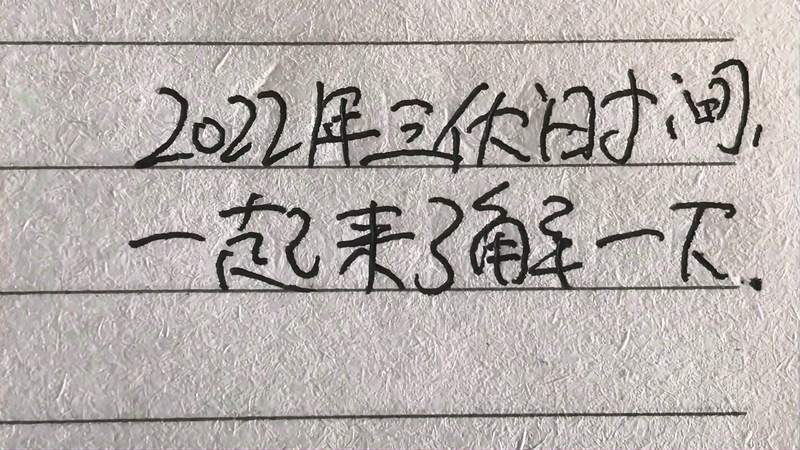 2022年三伏时间,
一起来了解一下.